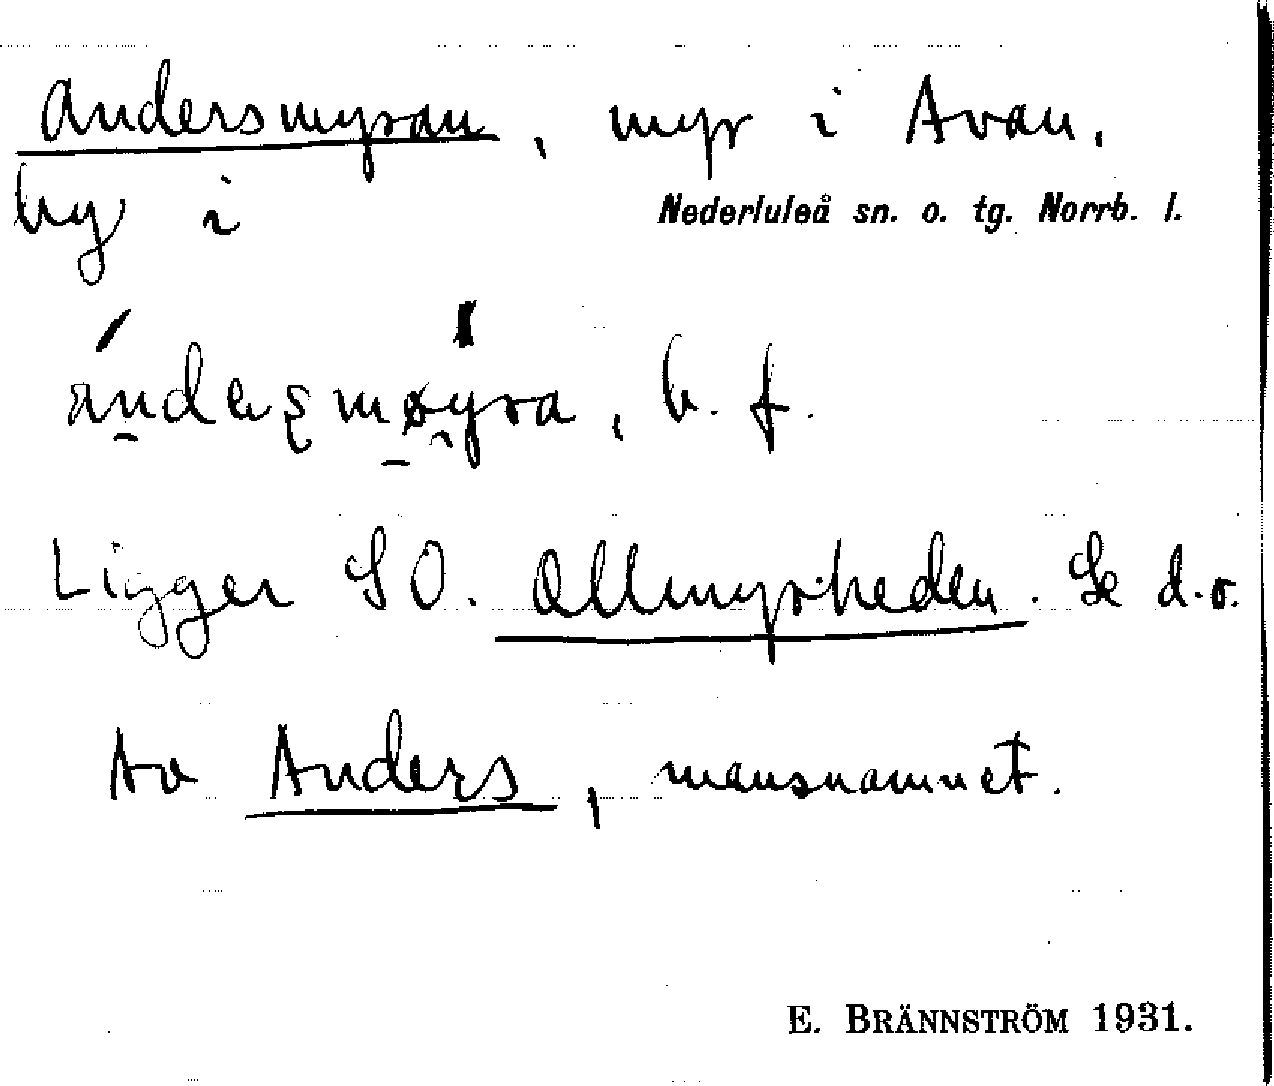 Andersmyran, myr i Avan,
by i Nederluleå sn. o. tg. Norrb. l.
b. f.
Ligger SO. Allmyrheden. Se d.o.
Av Anders, mansnamnet.
E. BRÄNNSTRÖM 1931.